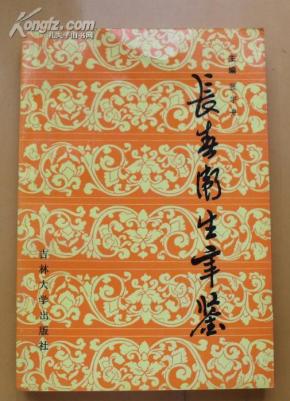 孔夫子旧书网
主编
長春衛生年鉴
吉林大学出版社
KONGFZ.COM